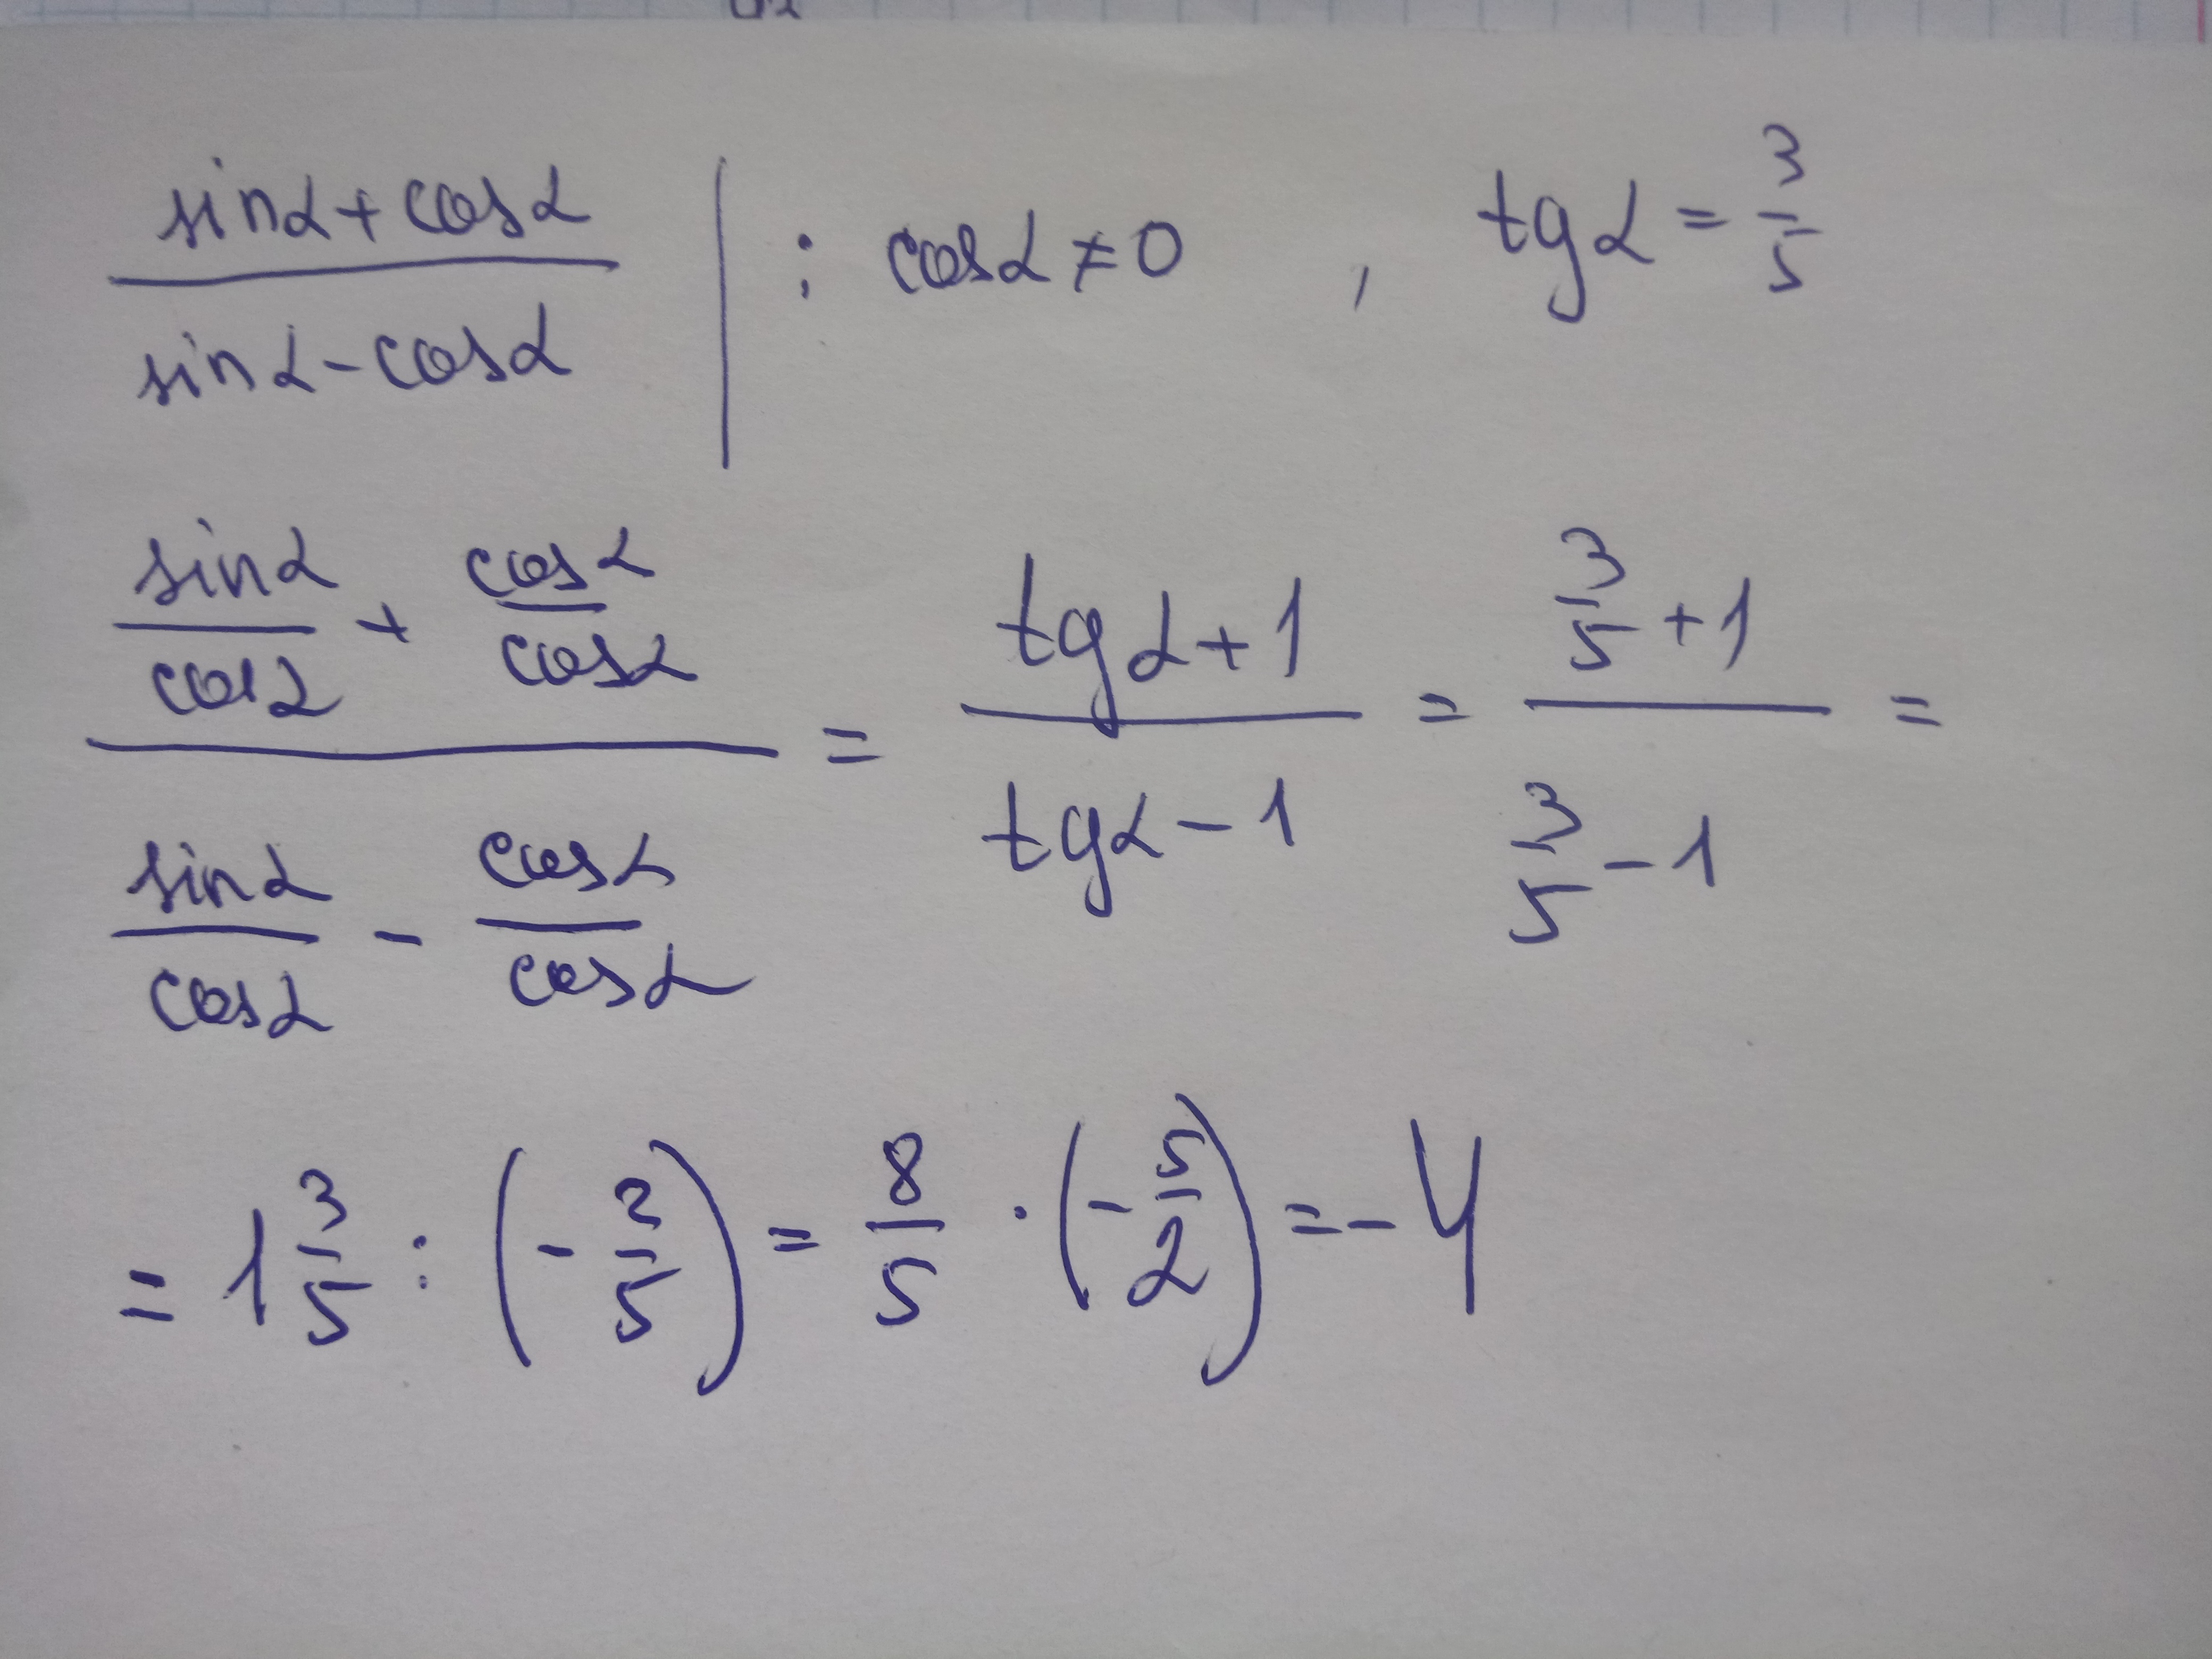 sinα+cosα / sinα-cosα | : cosα≠0 , tgα = 3/5
(sinα/cosα + cosα/cosα) / (sinα/cosα - cosα/cosα) = (tgα+1) / (tgα-1) = (3/5 +1) / (3/5 -1) =
= 1 3/5 : (- 2/5) = 8/5 · (- 5/2) = -4